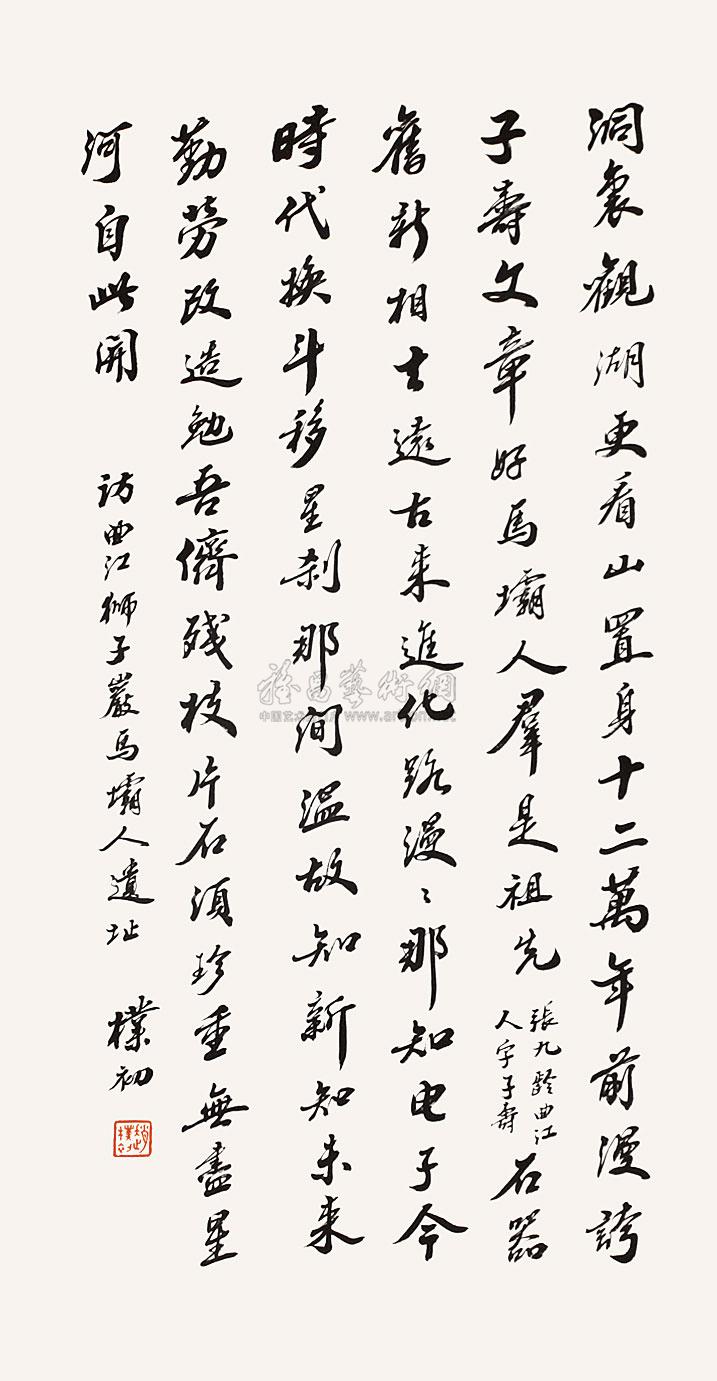 洞裏觀湖更看山置身十二萬年前漫誇
子壽文章好馬壩人羣是祖先
張九齡曲江
人字子壽
石器
舊新相去遠古来進化路漫〻那知电子今
時代換斗移星刹那间温故知新知未来
勤劳改造勉吾儕残枝片石须珍重無盡星
河自此開
访曲江狮子巖馬壩人遺址
樸初
趙樸初